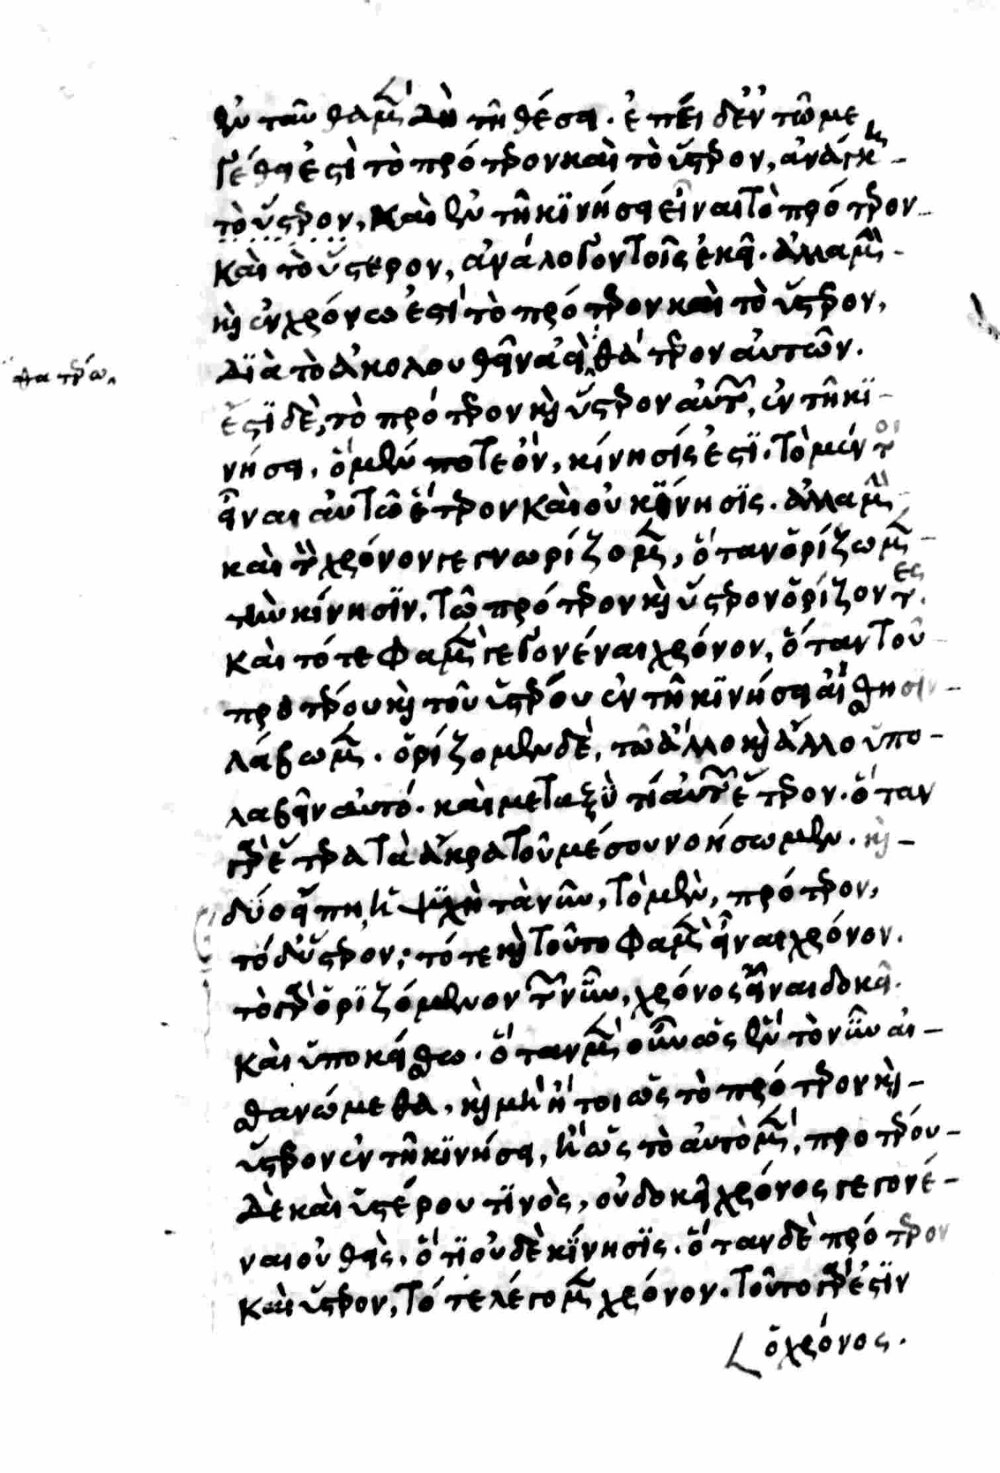 ἐν ταῦθα μὲν δὴ τῆ θέσει. ἐπεὶ δ' ἐν τῶ με
γέθει ἐστὶ τὸ πρότερον καὶ τὸ ὕστερον, ἀνάγκη
τὸ ὕστερον, καὶ ἐν τῆ κινήσει εἶναι τὸ πρότερον
καὶ τὸ ὕστερον, ἀνάλογον τοῖς ἐκεῖ. ἀλλὰ μὴν
καὶ ἐν χρόνω ἐστὶ τὸ πρότερον καὶ τὸ ὕστερον,
διὰ τὸ ἀκολουθεῖν ἀεὶ θάτερον αὐτῶν.
θατέρω
ἔστι δὲ, τὸ πρότερον καὶ ὕστερον αὐτῶν, ἐν τῆ κι
νήσει, ὃ μέν ποτε ὂν, κίνησίς ἐστι. τὸ μέντοι
εἶναι αὐτῶ ἕτερον καὶ οὐ κίνησις. ἀλλὰ μὴν
καὶ τὸν χρόνον γε γνωρίζομεν, ὅταν ὁρίζωμεν
τὴν κίνησιν, τῶ πρότερον καὶ ὕστερον ὁρίζοντες.
καὶ τότε φαμὲν γεγονέναι χρόνον, ὅταν τοῦ
προτέρου καὶ τοῦ ὑστέρου ἐν τῆ κινήσει αἴσθησιν
λάβωμεν. ὁρίζομεν δὲ, τῶ ἄλλο καὶ ἄλλο ὑπο
λαβεῖν αὐτό. καὶ μεταξύ τι αὐτῶν ἕτερον. ὅταν
γὰρ ἕτερα τὰ ἄκρα τοῦ μέσου νοήσωμεν. καὶ
δύο εἴπη ἡ ψυχὴ τὰ νῦν, τὸ μὲν, πρότερον,
τὸ δ' ὕστερον; τότε καὶ τοῦτο φαμὲν εἶναι χρόνον.
τὸ γὰρ ὁριζόμενον τῶ νῦν, χρόνος εἶναι δοκεῖ.
καὶ ὑποκείσθω. ὅταν μὲν οὖν ὡς ἓν τὸ νῦν αἰ
σθανώμεθα, καὶ μὴ ἤτοι ὡς τὸ πρότερον καὶ
ὕστερον ἐν τῆ κινήσει, ἢ ὡς τὸ αὐτὸ μὲν, προτέρου
δὲ καὶ ὑστέρου τινὸς, οὐ δοκεῖ χρόνος γεγονέ
ναι οὐθεὶς, ὅτι οὐδὲ κίνησις. ὅταν δὲ πρότερον
καὶ ὕστερον, τότε λέγομεν χρόνον. τοῦτο γὰρ ἐστὶν
ὁ χρόνος.